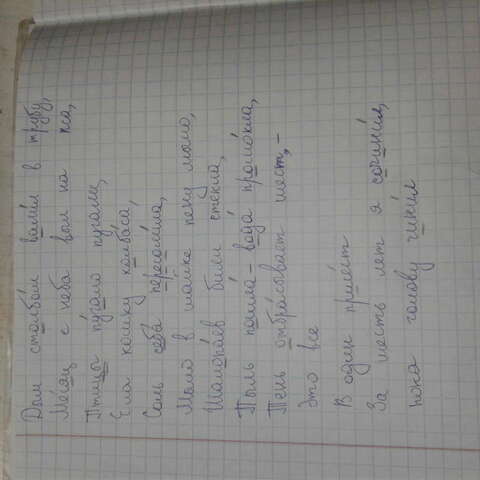 Дым столбо́м вали́л в трубу,
Ме́сяц с неба выл на пса,
Птицы пу́гало пугали,
Ела кошку колба́са,
Соль себя́ пересоли́ла,
Мыло в шайке пену мыло,
Шалопа́ев били стёкла,
Пыль пошла́ – вода́ промо́кла,
Тень отбра́сывает шест, –
Это все
В один прие́ст
За шесть лет я сочини́л,
пока голову чини́л